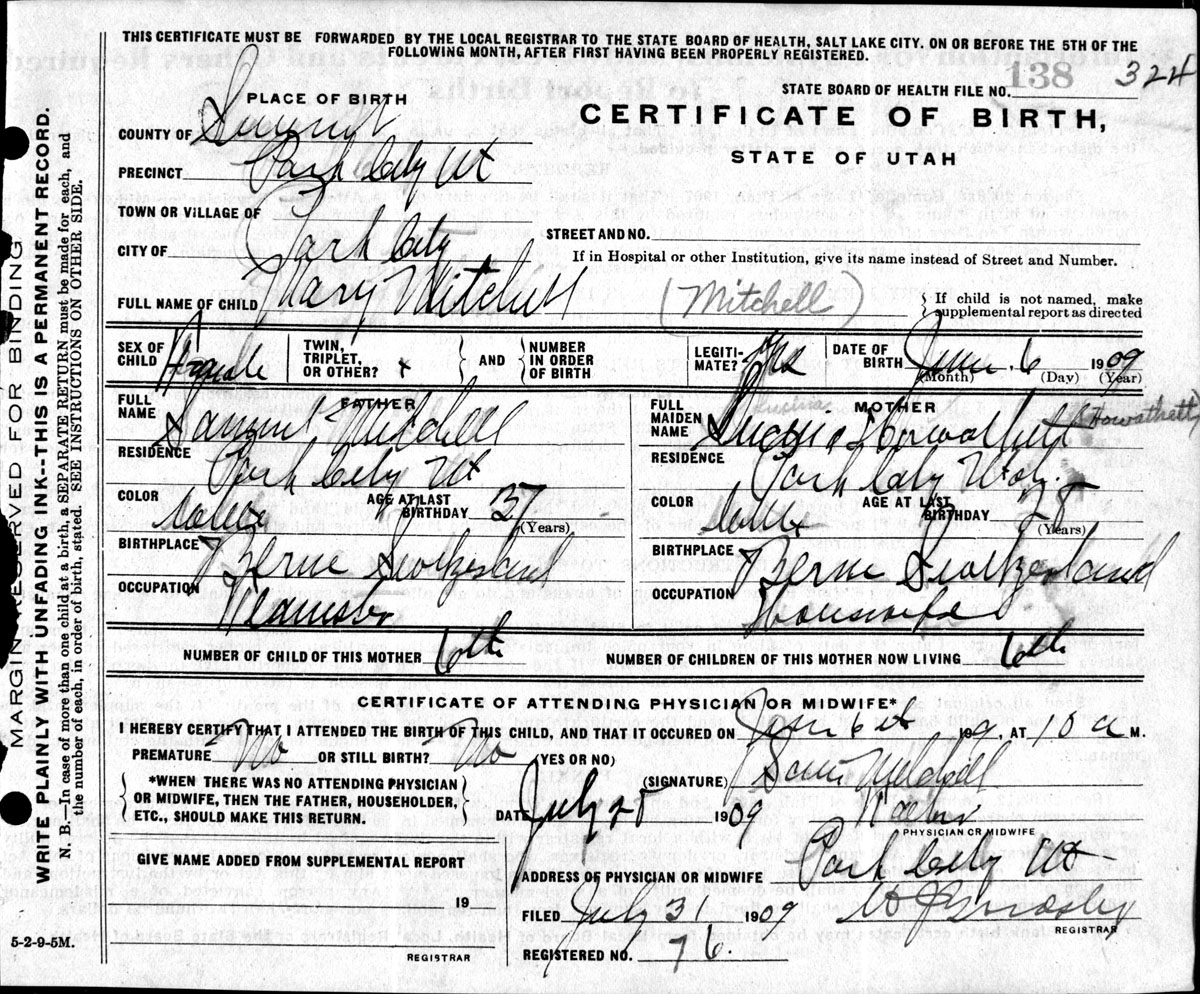 THIS CERTIFICATE MUST BE FORWARDED BY THE LOCAL REGISTRAR TO THE STATE BOARD OF HEALTH, SALT LAKE CITY. ON OR BEFORE THE 5TH OF THE
FOLLOWING MONTH, AFTER FIRST HAVING BEEN PROPERLY REGISTERED.
138 324
STATE BOARD OF HEALTH FILE NO.
PLACE OF BIRTH
CERTIFICATE OF BIRTH,
STATE OF UTAH
COUNTY OF Summit
PRECINCT Park City Ut
TOWN OR VILLAGE OF
CITY OF Park City
STREET AND NO.
If in Hospital or other Institution, give its name instead of Street and Number.
FULL NAME OF CHILD Mary Mitchell (Mitchell)
If child is not named, make
supplemental report as directed
SEX OF CHILD Female
TWIN, TRIPLET, OR OTHER? x
AND
NUMBER IN ORDER OF BIRTH
LEGITI-MATE? Yes
DATE OF BIRTH June 6 1909
(Month) (Day) (Year)
FATHER
FULL NAME Mitchell
RESIDENCE Park City Ut
COLOR White
AGE AT LAST BIRTHDAY 37 (Years)
BIRTHPLACE Berne Switzerland
OCCUPATION Teamster
MOTHER
FULL MAIDEN NAME (Howathett)
RESIDENCE Park City Utah.
COLOR White
AGE AT LAST BIRTHDAY (Years)
BIRTHPLACE Berne Switzerland
OCCUPATION Housewife
NUMBER OF CHILD OF THIS MOTHER 6th
NUMBER OF CHILDREN OF THIS MOTHER NOW LIVING 6th
CERTIFICATE OF ATTENDING PHYSICIAN OR MIDWIFE*
I HEREBY CERTIFY THAT I ATTENDED THE BIRTH OF THIS CHILD, AND THAT IT OCCURED ON June 6th 1909, AT 10 a M.
PREMATURE No OR STILL BIRTH? No (YES OR NO)
(SIGNATURE) Mitchell
*WHEN THERE WAS NO ATTENDING PHYSICIAN
OR MIDWIFE, THEN THE FATHER, HOUSEHOLDER,
ETC., SHOULD MAKE THIS RETURN.
DATE July 25 1909
PHYSICIAN OR MIDWIFE
GIVE NAME ADDED FROM SUPPLEMENTAL REPORT
19
REGISTRAR
ADDRESS OF PHYSICIAN OR MIDWIFE Park City Ut
FILED July 31 1909
REGISTRAR
REGISTERED NO. 76.
5-2-9-5M.
MARGIN RESERVED FOR BINDING
WRITE PLAINLY WITH UNFADING INK--THIS IS A PERMANENT RECORD.
N. B.—In case of more than one child at a birth, a SEPARATE RETURN must be made for each, and
the number of each, in order of birth, stated. SEE INSTRUCTIONS ON OTHER SIDE.